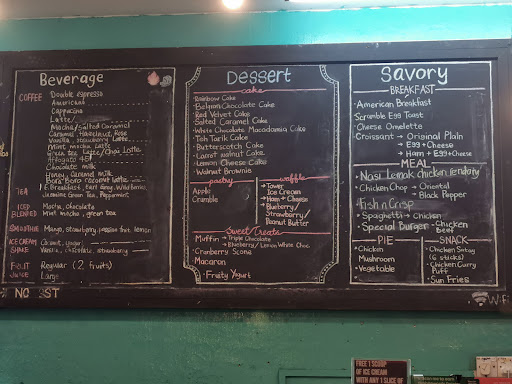 Beverage
COFFEE Double espresso
Americano
Cappucino
Latte
Mocha/Salted Caramel
Caramel, Hazelnut, Rose
Vanilla, strawberry Latte
Mint mocha Latte
Green tea Latte/Chai Latte
Affogato
Chocolate milk
Honey, caramel milk
Bora Bora coconut Latte
TEA E. Breakfast, Earl Grey, Wild Berries
Jasmine Green Tea, Peppermint
ICED Mocha, chocolate
BLENDED Mint mocha, green tea
SMOOTHIE Mango, strawberry, passion fruit, lemon
ICE CREAM Coconut, yogurt
SHAKE Vanilla, chocolate, strawberry
Regular (2 fruits)
JUICE
Dessert
cake
Rainbow Cake
Belgian Chocolate Cake
Red Velvet Cake
Salted Caramel Cake
White Chocolate Macadamia Cake
Teh Tarik Cake
Butterscotch Cake
Carrot walnut Cake
Lemon Cheese Cake
Walnut Brownie
pastry
Apple
Crumble
waffle
→ Tower
Ice Cream
→ Ham + Cheese
→ Blueberry/
Strawberry/
Peanut Butter
Sweet Treats
Muffin → Triple Chocolate
→ Blueberry/Lemon White Choc
Cranberry Scone
Macaron
Fruity Yogurt
Savory
BREAKFAST
American Breakfast
Scramble Egg Toast
Cheese Omelette
Croissant → Original Plain
→ Egg + Cheese
→ Ham + Egg + Cheese
MEAL
Nasi Lemak chicken rendang
Chicken Chop → Oriental
Black Pepper
Fish n Crisp
Spaghetti → Chicken
Special Burger → Chicken
Beef
PIE
Chicken
Mushroom
Vegetable
SNACK
Chicken Satay
(6 sticks)
Chicken Curry
Puff
Sun Fries
FREE 1 SCOOP
OF ICE CREAM
WITH ANY 1 SLICE OF